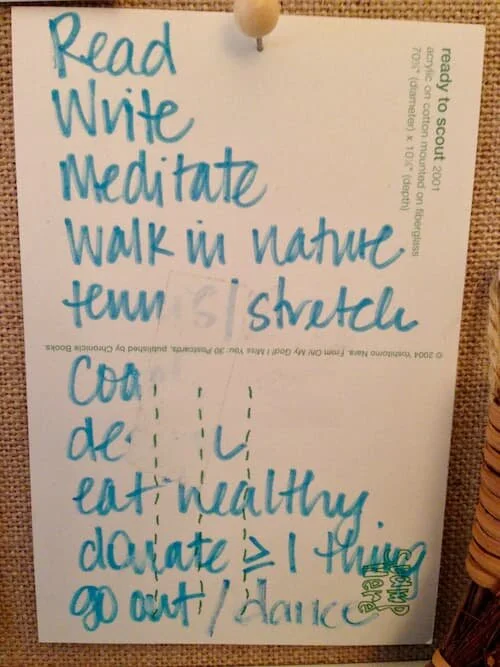 Read
Write
Meditate
Walk in nature
tennis/stretch
eat healthy
donate ≥ 1 thing
go out / dance
ready to scout 2001
acrylic on cotton mounted on fiberglass
70⅞" (diameter) x 10¼" (depth)
© 2004 Yoshitomo Nara. From Oh! My God! I Miss You: 30 Postcards, published by Chronicle Books.
stamp
here